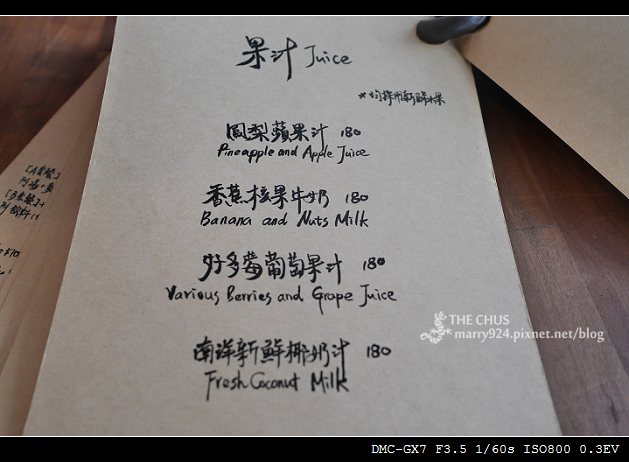 果汁 Juice
*均採用新鮮水果
鳳梨蘋果汁 180
Pineapple and Apple Juice
香蕉核果牛奶 180
Banana and Nuts Milk
好多莓葡萄果汁 180
Various Berries and Grape Juice
南洋新鮮椰奶汁 180
Fresh Coconut Milk
THE CHUS
marry924.pixnet.net/blog
DMC-GX7 F3.5 1/60s ISO800 0.3EV